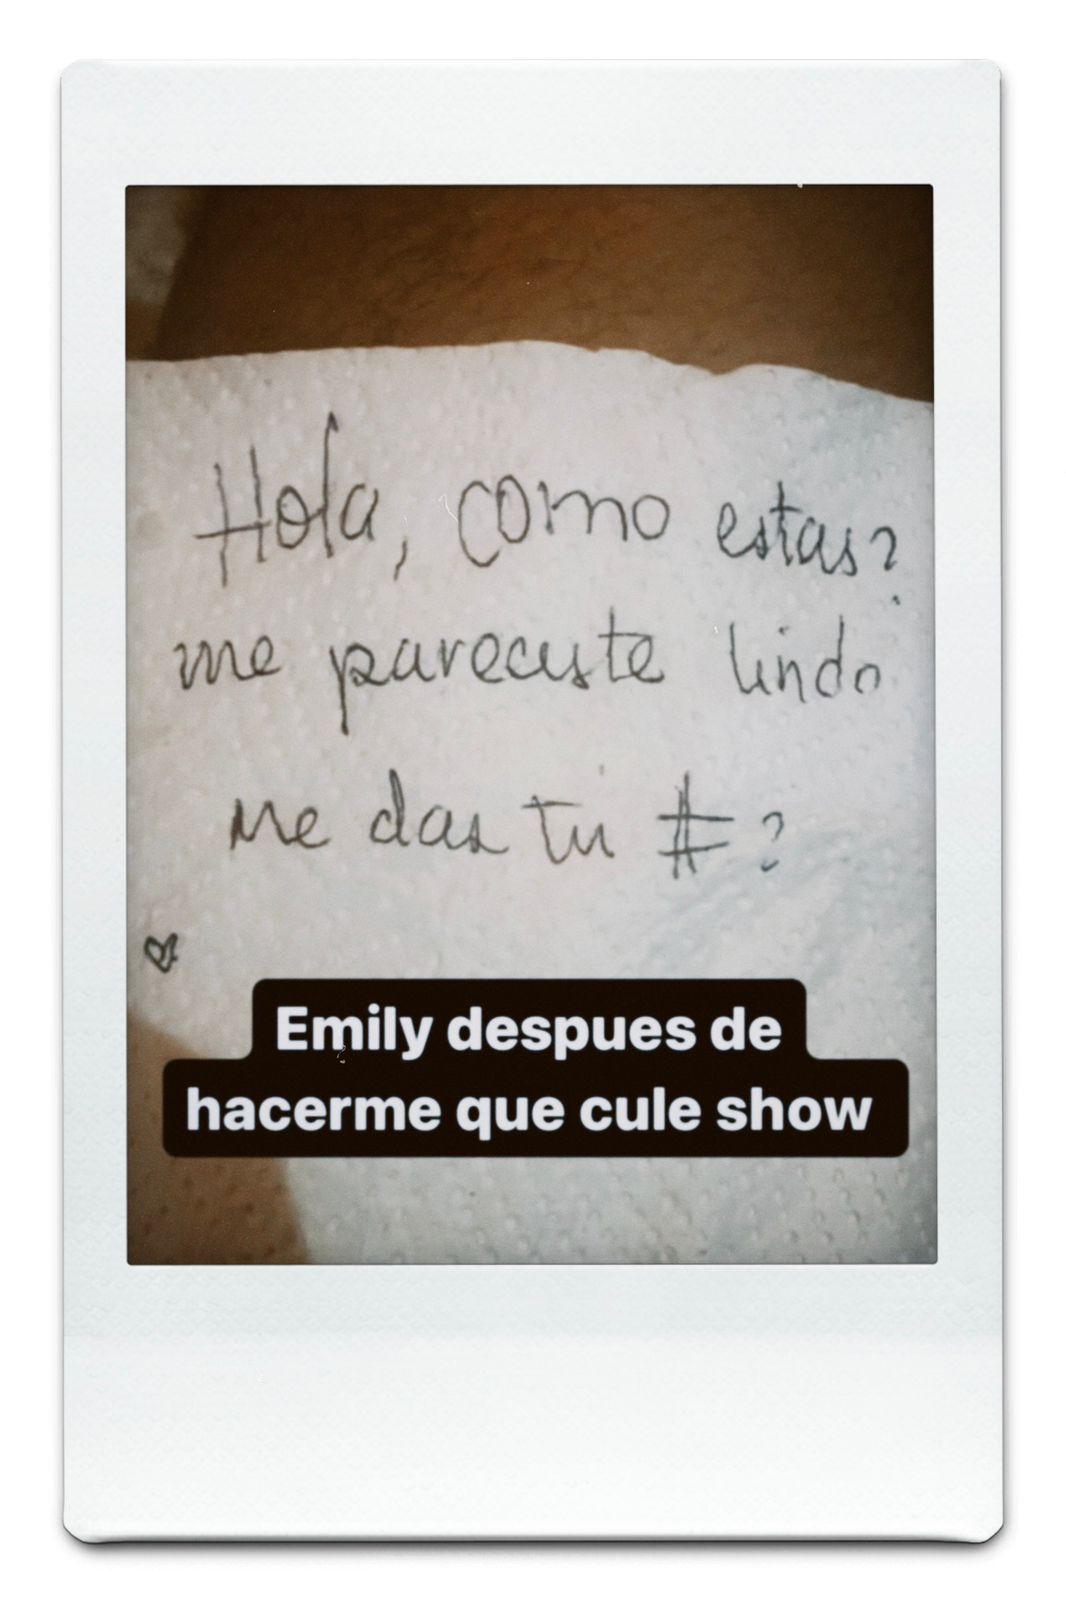 Hola, como estas?
me pareciste lindo
me das tu #?
Emily despues de
hacerme que cule show